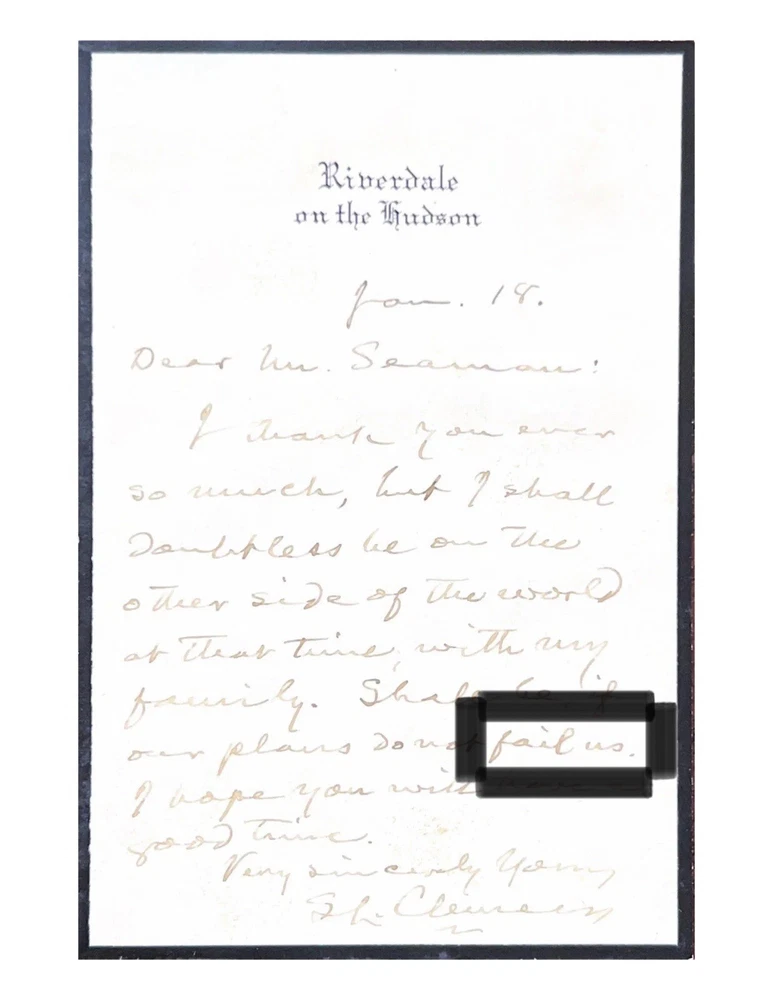 Riverdale
on the Hudson
Jan. 18.
Dear Mr. Seaman:
I thank you ever
so much, but I shall
doubtless be on the
other side of the world
at that time, with my
family. Shall be, if
our plans do not fail us.
I hope you will have
good time.
Very sincerely Yours
SL. Clemens